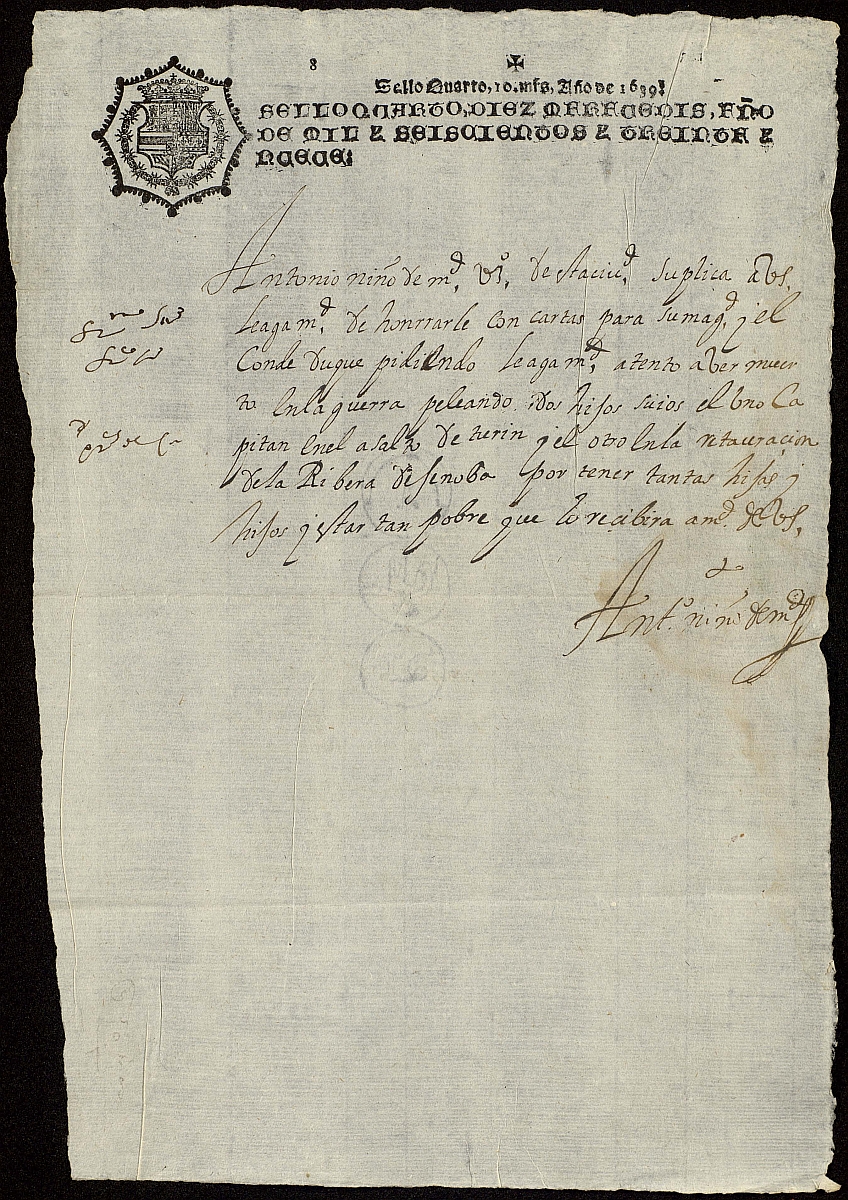 8
Sello Quarto, 10. mrs, Año de 1639.
SELLO QUARTO, DIEZ MARAVEDIS, AÑO
DE MIL Y SEISCIENTOS Y TREINTA Y
NUEVE.
Antonio niño de md, Vº, de esta ciud, suplica a VS,
le aga md, de honrrarle con cartas para su magd, y el
Conde Duque pidiendo le aga md, atento aver muer
to En la guerra peleando Dos hijos suios el Uno Ca
pitan En el asalto de turin y el otro En la retauracion
de la Ribera de senoba por tener tantas hijas y
hijos y estar tan pobre que lo recibira a md. de VS,
Antº niño de md